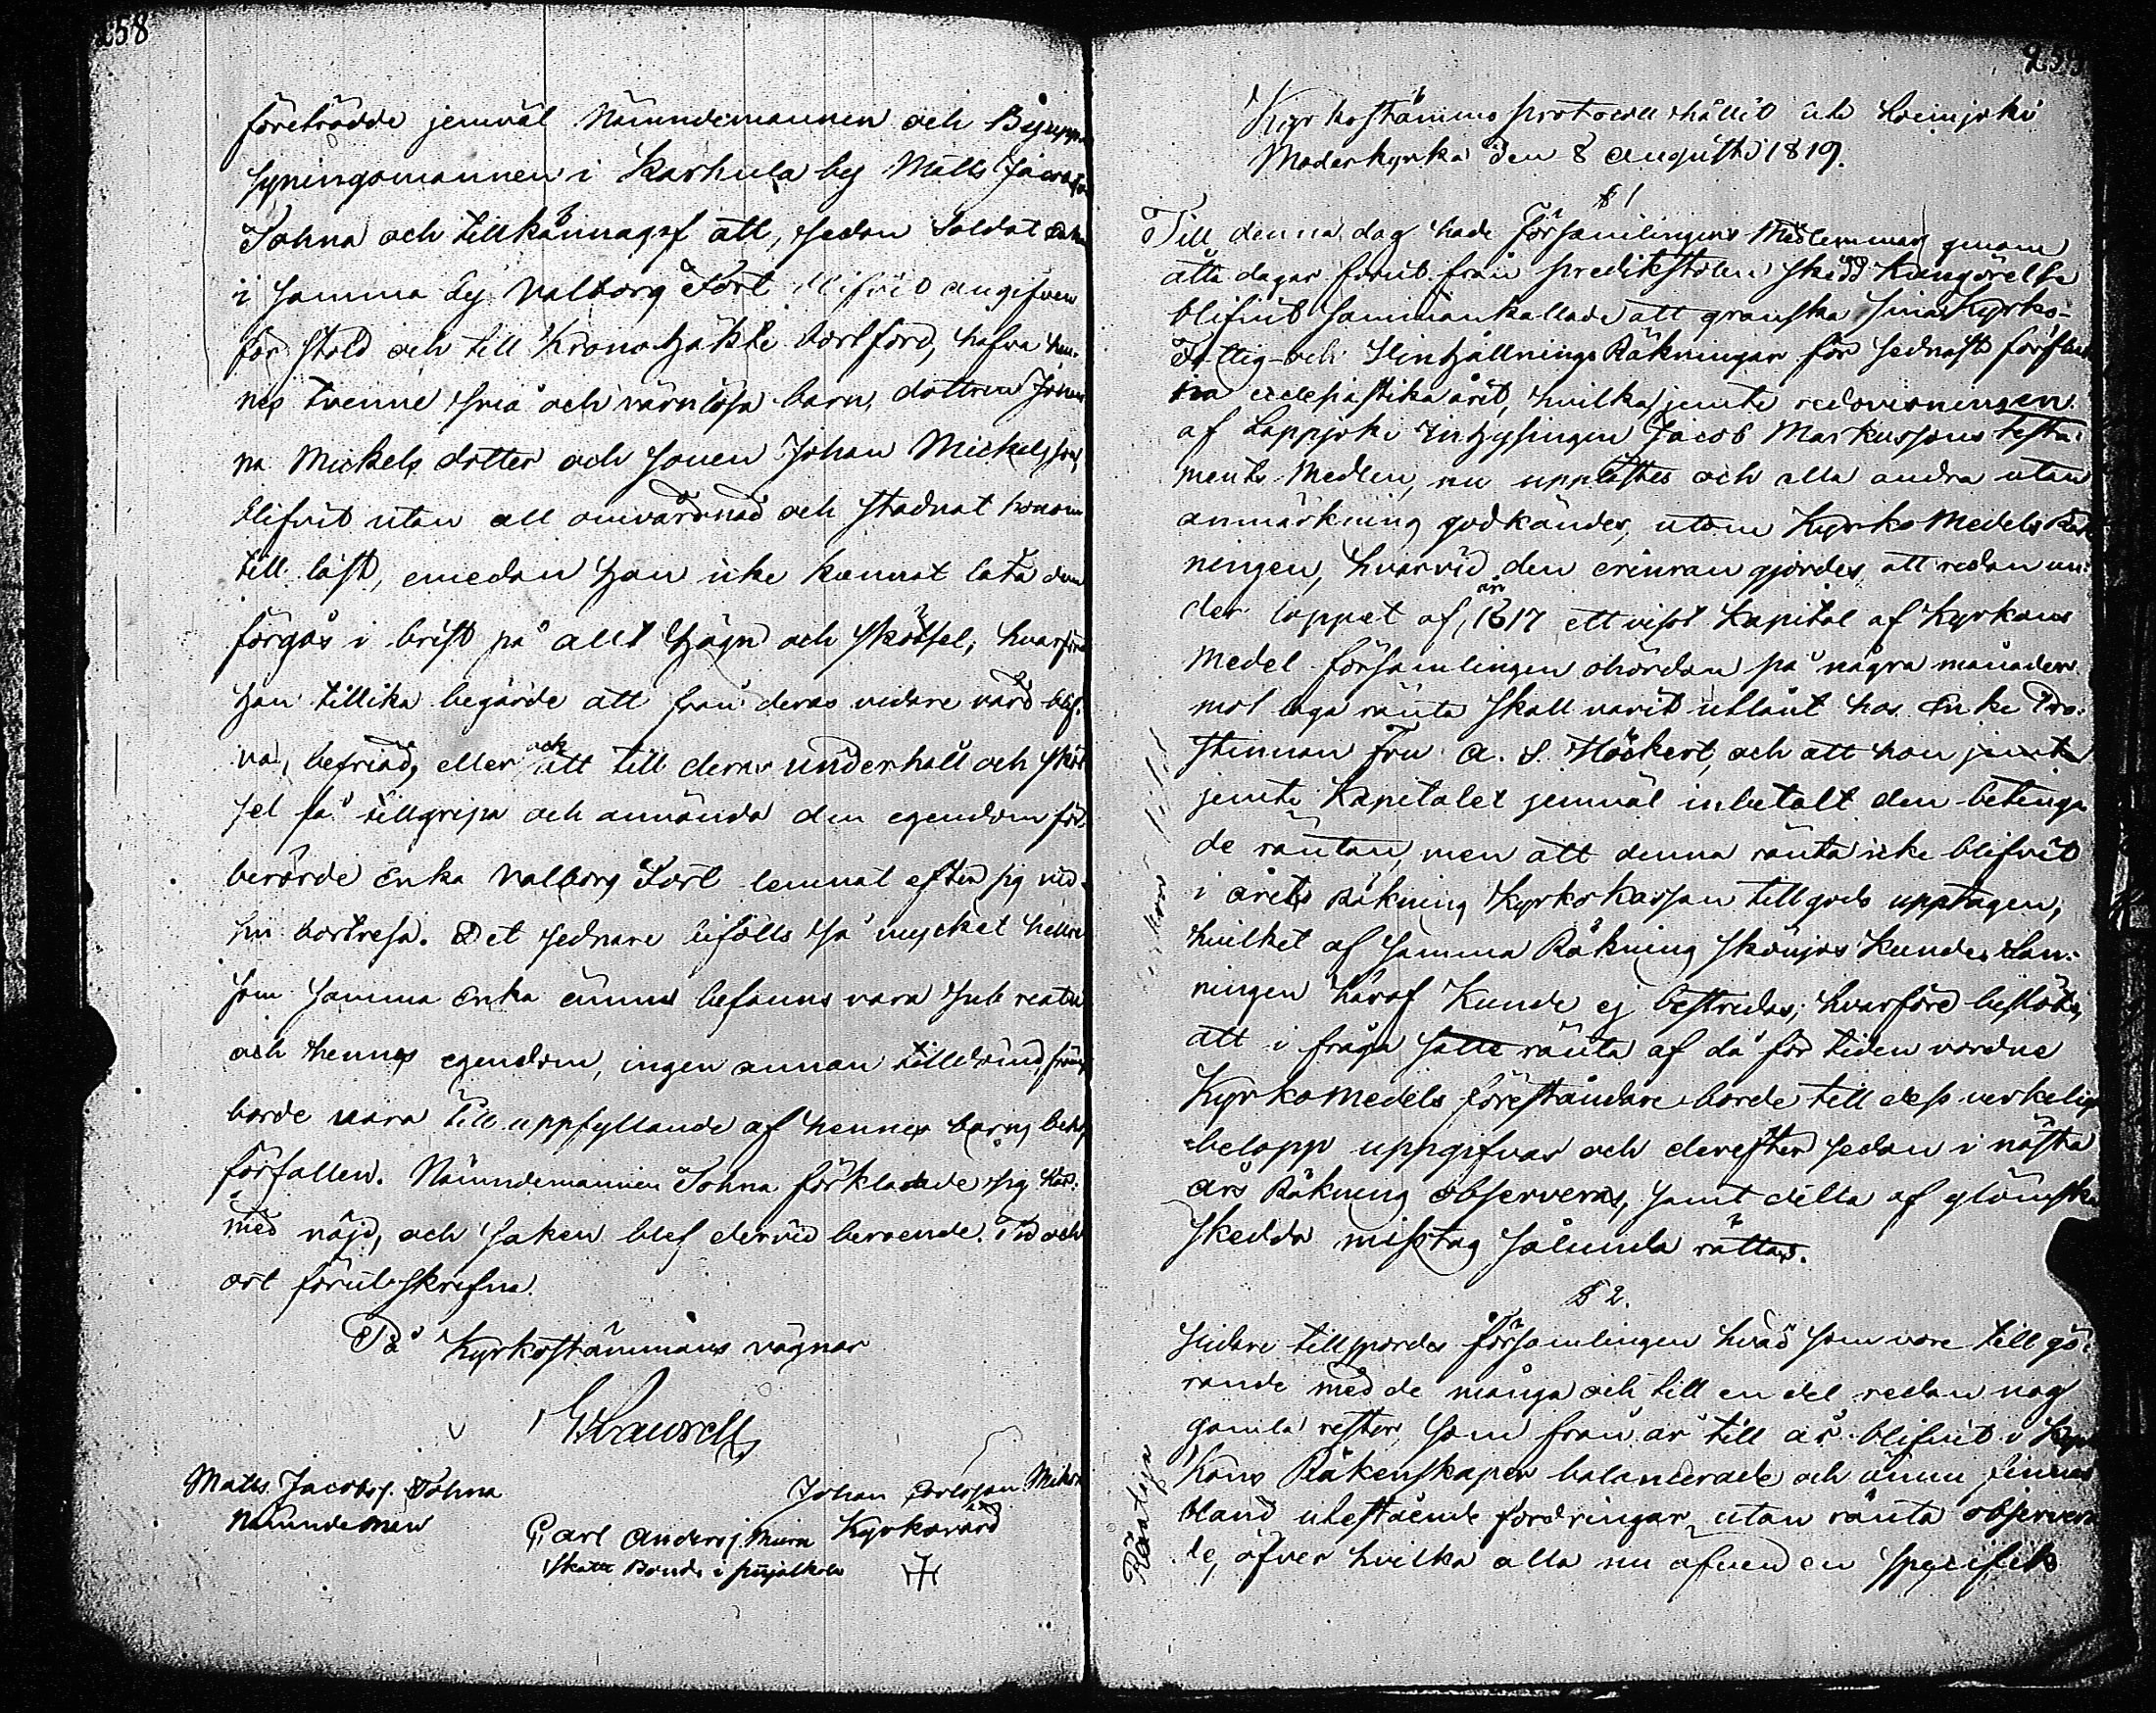 258
företrädde jemväl Nämndemannen och Byupp
syningsmannen i Karhula by Matts Jacobss:
Tohna och tillkännagaf att, sedan Soldat Enkan
i samma by Valborg Tört blifvit angifven
för stöld och till Kronohäkte bortförd, hafva hen-
nes tvenne små och värnlösa barn, dottren Johan
na Mickels dotter och sonen Johan Mickelsson,
blifvit utan all omvårdnad och stadnat honom
till last, emedan han icke kunnat låta dem
förgås i brist på allt hägn och skötsel; hvarföre
han tillika begärde att från deras vidare vård blif-
va befriad, eller ock att till deras underhåll och sköt
sel få tillgripa och använda den egendom för-
berörde Enka Valborg Tört lemnat efter sig vid
sin bortresa. Det sednare bifölls så mycket hellre
som samma Enka ännu befanns vara sub reatu
och hennes egendom, ingen annan tilldömd,
borde vara till uppfyllande af hennes barns behof
förfallen. Nämndemannen Tohna förklarade sig här-
med nöjd, och saken blef dervid beroende. Tid och
ort förutskrefne.
På Kyrkostämmans vägnar
Matts Jacobss. Tohna
Nämndeman
Johan
Kyrkovärd
Carl Anderss.
Skatte Bonde i
259
Kyrkostämmo protocoll hållit uti Heinjoki
Moderkyrka den 8 Augusti 1819.
§ 1
Till denna dag hade Församlingens Medlemmar genom
åtta dagar förut från predikstolen skedd Kungörelse
blifvit sammankallade att granska sina Kyrko-
Fattig- och Räkningar för sednast förflut
na ecclesiastika året, hvilka jemte redovisningen
af Lappjoki Inhysingen Jacob Markussons testa-
ments Medlen, nu upplästes och alla andra utan
anmärkning godkändes, utom Kyrko Medels Räk
ningen, hvarvid den erinran gjordes, att redan un-
der loppet af år 1817 ett visst Kapital af Kyrkans
Medel församlingen ohördan på några månader
mot laga ränta skall varit utlånt hos Enke Pro-
stinnan Fru A. S. Höckert, och att hon jemte
jemte Kapitalet jemväl inbetalt den betinga
de räntan, men att denna ränta icke blifvit
i årets Räkning Kyrko Kassan till godo upptagen,
hvilket af samma Räkning skönjas kunde. San-
ningen häraf kunde ej bestridas; hvarföre beslöts,
att i fråga satte ränta af då för tiden vordne
Kyrko Medels föreståndare borde till dess verkelige
belopp uppgifvas och derefter sedan i nästa
års Räkning observeras, samt detta af glömska
skedda misstag sålunda rättas.
§ 2.
Vidare tillspordes församlingen hvad som vore till gö-
rande med de många och till en del redan nog
gamla rester, som från år till år blifvit i Kyr
kans Räkenskaper balancerade och ännu finnas
bland utestående fordringar, utan ränta observera
de, öfver hvilka alla nu äfven en specifik